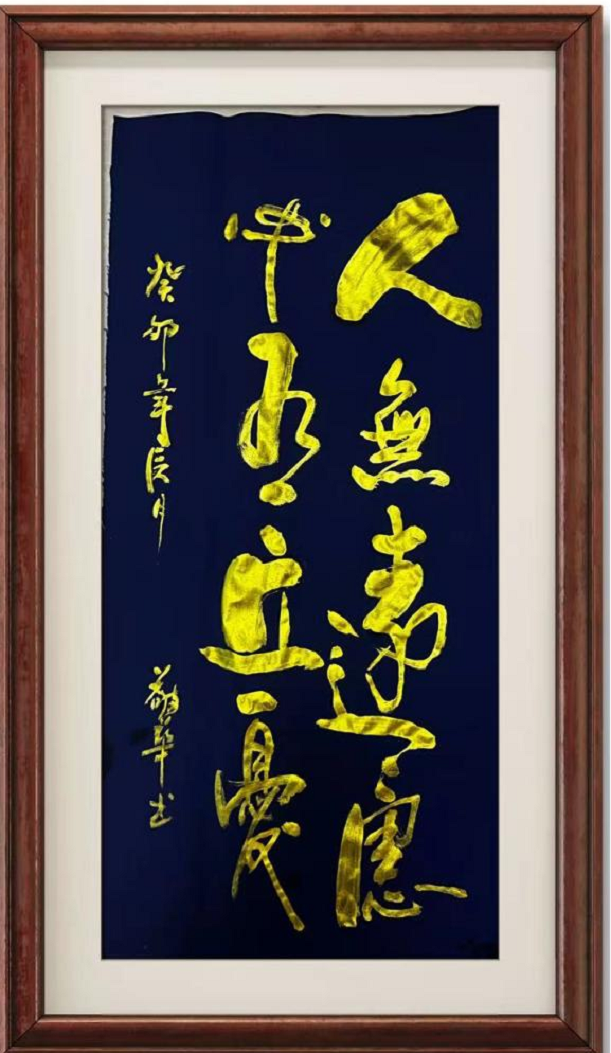 人無遠慮
必有近憂
癸卯年辰月
敬華书